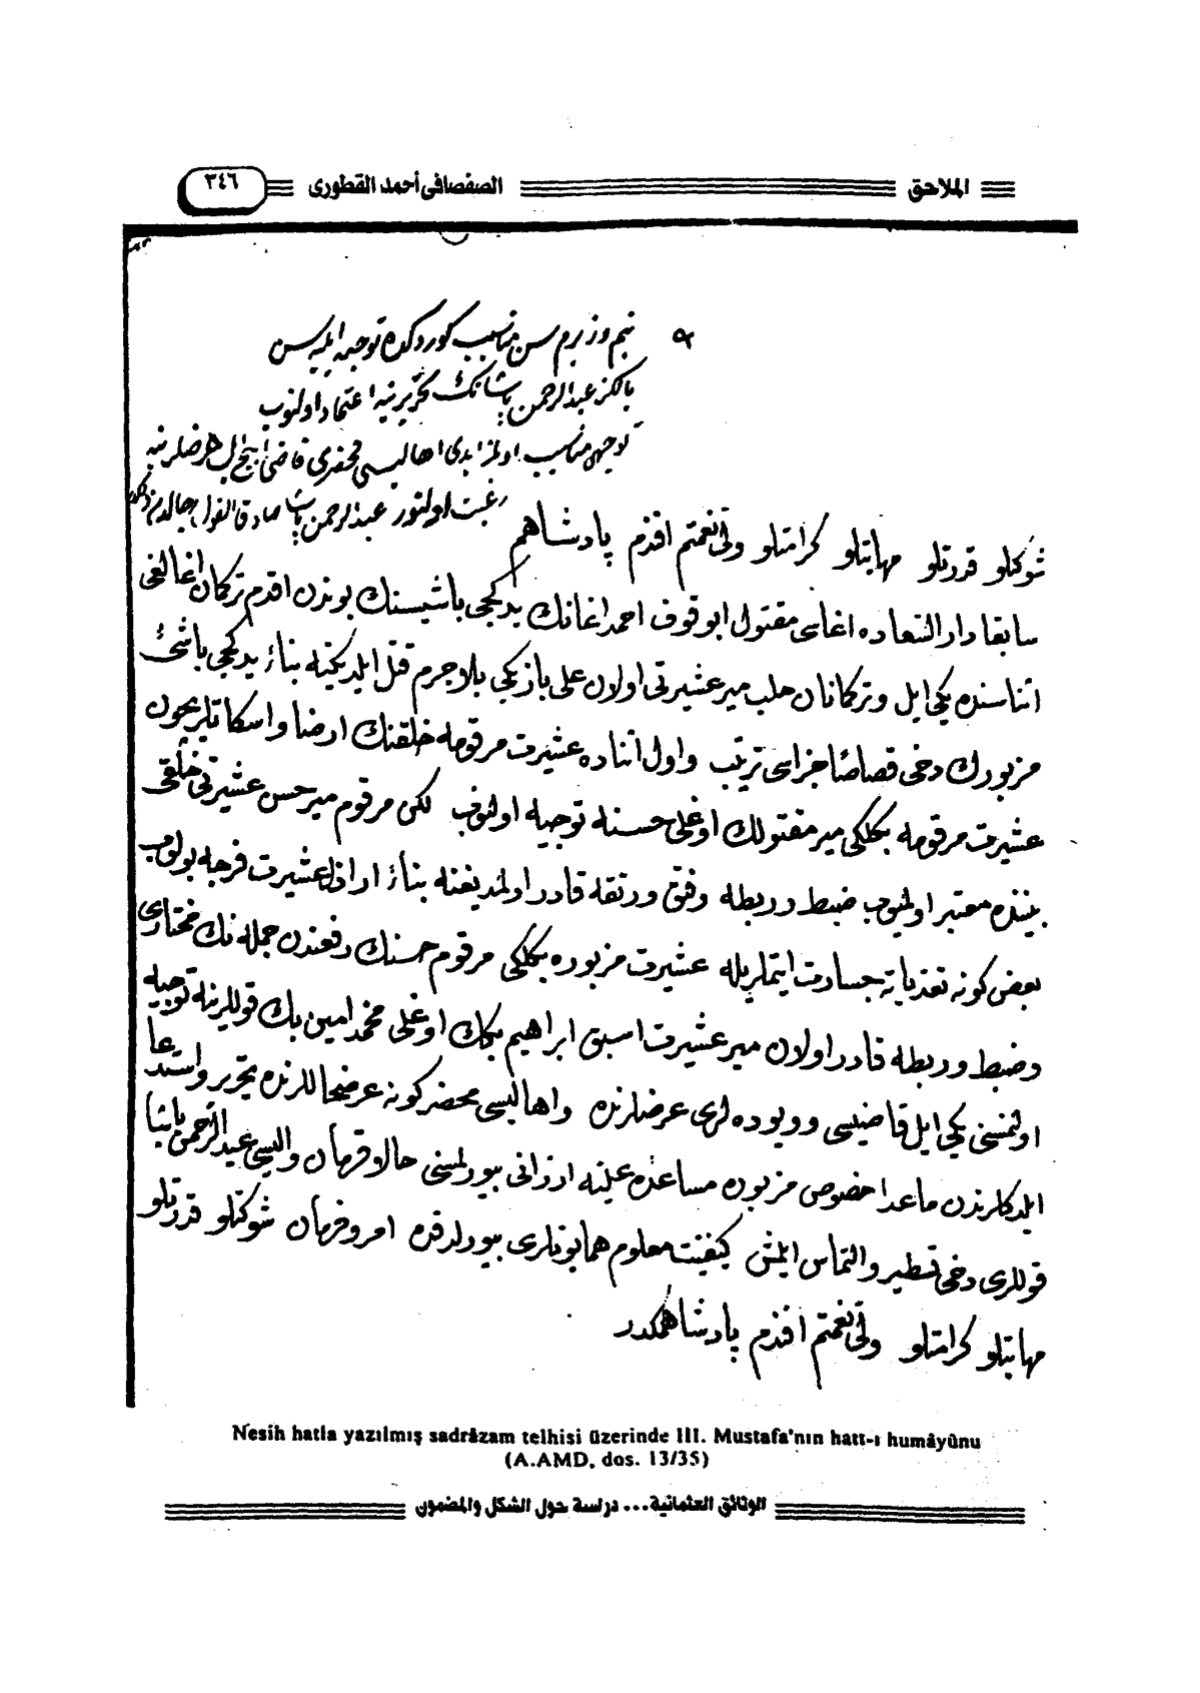 الملاحق
الصفصافى أحمد القطورى
٣٤٦
بنم وزيرم سن مناسب كوردكه توجيه ايليه سن
يالكز عبدالرحمن پاشانك تحريرينه اعتماد اولنوب
توجيهى مناسب اولمز ايدى اهاليسى محضرى قاضى
رغبت اولنور عبدالرحمن پاشا صادق القول
شوكتلو قدرتلو مهابتلو كرامتلو ولى نعمتم افندم پادشاهم
سابقا دار السعاده اغاسى مقتول ابو قوف احمد اغانك يدكجى باشيسنك بوندن اقدم تركمان اغالغى
اثناسنده يكى ايل و تركمانان حلب مير عشيرتى اولان على بازيكى بلا جرم قتل ايلديكنه بناءً يدكجى باشئ
مزبورك دخى قصاصا جزاسى ترتيب و اول اثناده عشيرت مرقومه خلقنك ارضا و اسكاتلريچون
عشيرت مرقومه بكلكى مير مقتولك اوغلى حسنه توجيه اولنوب لكن مرقوم مير حسن عشيرتى خلقى
بيننده معتبر اولميوب ضبط و ربطه وفتق و رتقه قادر اولمديغنه بناءً اراذل عشيرت فرجه بولوب
بعض كونه تعدياته جسارت ايتملريله عشيرت مزبوره بكلكى مرقوم حسنك رفعندن جمله نك مختارى
و ضبط و ربطه قادر اولان مير عشيرت اسبق ابراهيم بكك اوغلى محمد امين بك قوللرينه توجيه
اولنمسنى يكى ايل قاضيسى و ويوده لرى عرضلرنده و اهاليسى محضر كونه عرضحاللرنده تحرير و استدعا
ايلدكلرندن ماعدا خصوص مزبوره مساعده عليه ارزانى بيورلمسنى حالا قرمان واليسى عبد الرحمن پاشا
قوللرى دخى تسطير و التماس ايلمش كيفيت معلوم همايونلرى بيورلدقده امر و فرمان شوكتلو قدرتلو
مهابتلو كرامتلو ولى نعمتم افندم پادشاهمكدر
Nesih hatla yazılmış sadrâzam telhisi üzerinde III. Mustafa'nın hatt-ı humâyûnu
(A.AMD, dos. 13/35)
الوثائق العثمانية... دراسة حول الشكل والمضمون